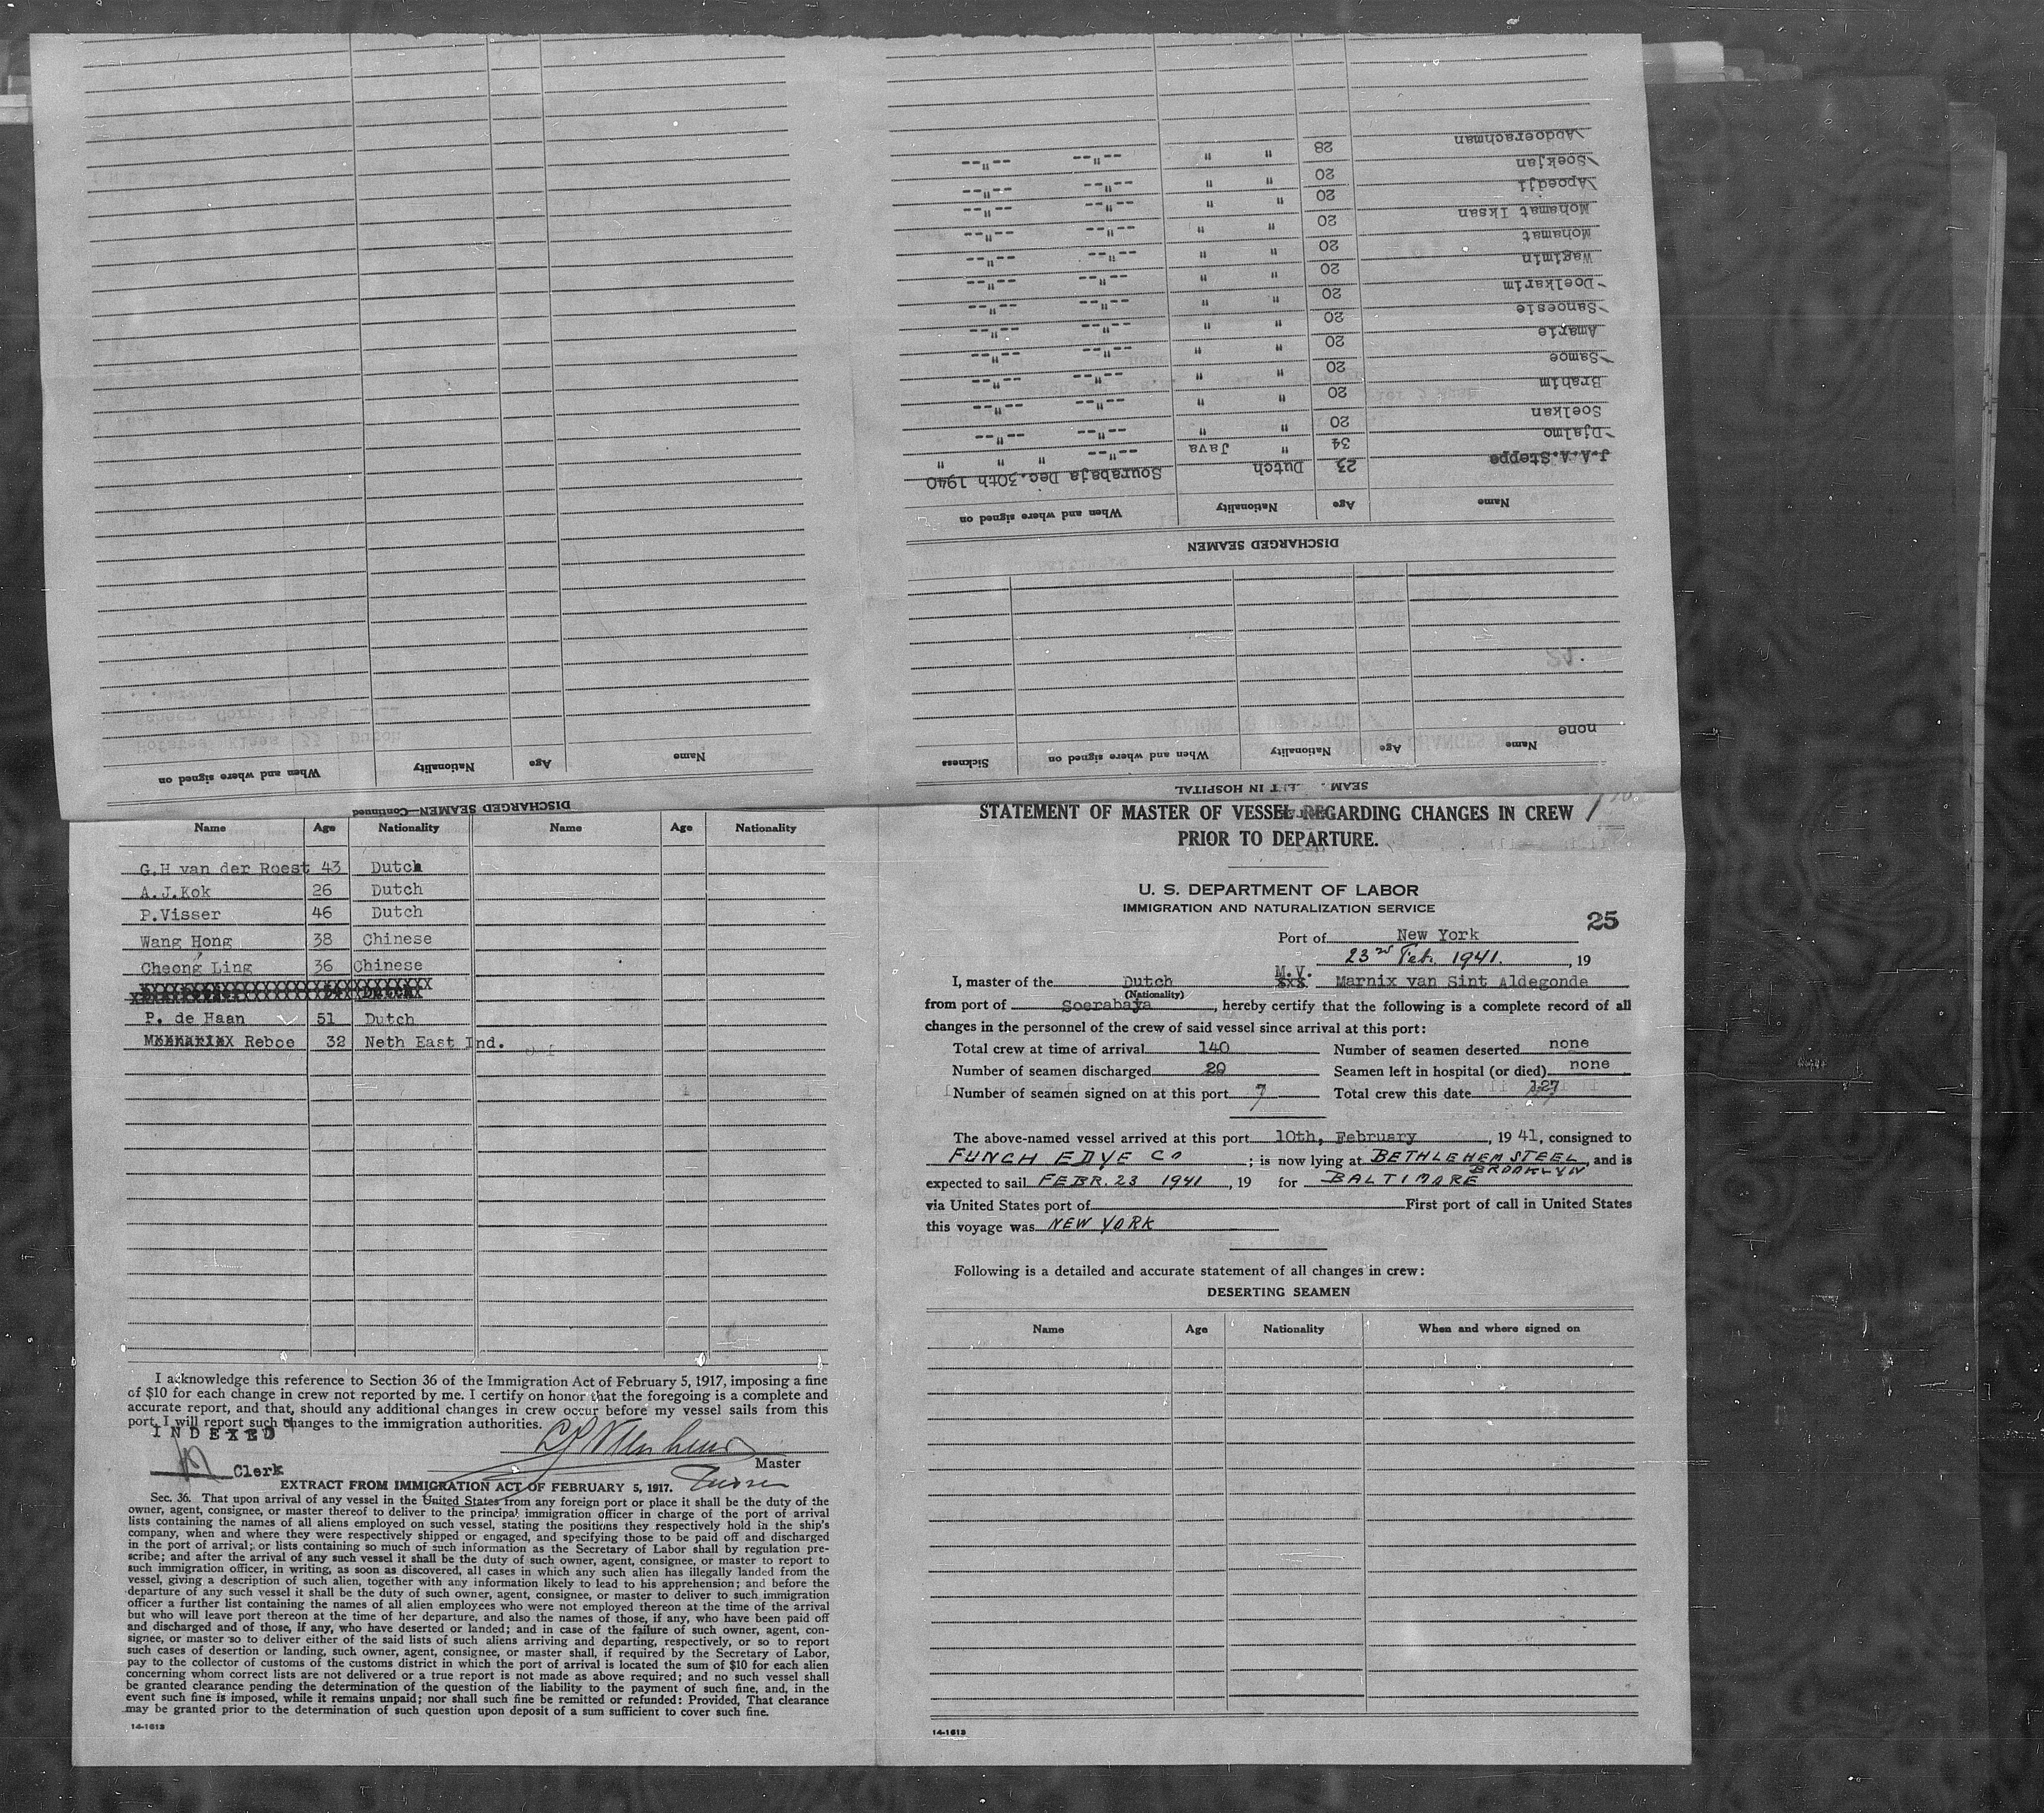 DISCHARGED SEAMEN—Continued
Name Age Nationality When and where signed on
SEAM T IN HOSPITAL
Name Age Nationality When and where signed on Sickness
none
DISCHARGED SEAMEN
Name Age Nationality When and where signed on
J.A.A.Steppe 23 Dutch Sourabaja Dec.30th 1940
Djalmo 34 " Java --"-- " " "
Soelkan 20 " " --"-- --"--
Brahim 20 " " --"-- --"--
Samoe 20 " " --"-- --"--
Amarie 20 " " --"-- --"--
Sanoesie 20 " " --"-- --"--
Doelkarim 20 " " --"-- --"--
Wagimin 20 " " --"-- --"--
Mohamat 20 " " --"-- --"--
Mohamat Iksan 20 " " --"-- --"--
Apoedji 20 " " --"-- --"--
Soekjan 20 " " --"-- --"--
Abdoerachman 28 " " --"-- --"--
Name Age Nationality Name Age Nationality
G.H van der Roest 43 Dutch
A.J.Kok 26 Dutch
P.Visser 46 Dutch
Wang Hong 38 Chinese
Cheong Ling 36 Chinese
P. de Haan 51 Dutch
Reboe 32 Neth East Ind.
I acknowledge this reference to Section 36 of the Immigration Act of February 5, 1917, imposing a fine
of $10 for each change in crew not reported by me. I certify on honor that the foregoing is a complete and
accurate report, and that, should any additional changes in crew occur before my vessel sails from this
port, I will report such changes to the immigration authorities.
INDEXED
Clerk
Master
EXTRACT FROM IMMIGRATION ACT OF FEBRUARY 5, 1917.
Sec. 36. That upon arrival of any vessel in the United States from any foreign port or place it shall be the duty of the
owner, agent, consignee, or master thereof to deliver to the principal immigration officer in charge of the port of arrival
lists containing the names of all aliens employed on such vessel, stating the positions they respectively hold in the ship's
company, when and where they were respectively shipped or engaged, and specifying those to be paid off and discharged
in the port of arrival; or lists containing so much of such information as the Secretary of Labor shall by regulation pre-
scribe; and after the arrival of any such vessel it shall be the duty of such owner, agent, consignee, or master to report to
such immigration officer, in writing, as soon as discovered, all cases in which any such alien has illegally landed from the
vessel, giving a description of such alien, together with any information likely to lead to his apprehension; and before the
departure of any such vessel it shall be the duty of such owner, agent, consignee, or master to deliver to such immigration
officer a further list containing the names of all alien employees who were not employed thereon at the time of the arrival
but who will leave port thereon at the time of her departure, and also the names of those, if any, who have been paid off
and discharged and of those, if any, who have deserted or landed; and in case of the failure of such owner, agent, con-
signee, or master so to deliver either of the said lists of such aliens arriving and departing, respectively, or so to report
such cases of desertion or landing, such owner, agent, consignee, or master shall, if required by the Secretary of Labor,
pay to the collector of customs of the customs district in which the port of arrival is located the sum of $10 for each alien
concerning whom correct lists are not delivered or a true report is not made as above required; and no such vessel shall
be granted clearance pending the determination of the question of the liability to the payment of such fine, and, in the
event such fine is imposed, while it remains unpaid; nor shall such fine be remitted or refunded: Provided, That clearance
may be granted prior to the determination of such question upon deposit of a sum sufficient to cover such fine.
14-1613
STATEMENT OF MASTER OF VESSEL REGARDING CHANGES IN CREW
PRIOR TO DEPARTURE.
U. S. DEPARTMENT OF LABOR
IMMIGRATION AND NATURALIZATION SERVICE
25
Port of New York
23rd Feb. 1941. , 19
I, master of the Dutch M.V. Marnix van Sint Aldegonde
(Nationality)
from port of Soerabaya, hereby certify that the following is a complete record of all
changes in the personnel of the crew of said vessel since arrival at this port:
Total crew at time of arrival 140 Number of seamen deserted none
Number of seamen discharged 20 Seamen left in hospital (or died) none
Number of seamen signed on at this port 7 Total crew this date 127
The above-named vessel arrived at this port 10th, February, 1941, consigned to
FUNCH EDYE CO ; is now lying at BETHLEHEM STEEL, and is
BROOKLYN
expected to sail FEBR. 23 1941, 19 for BALTIMORE
via United States port of First port of call in United States
this voyage was NEW YORK
Following is a detailed and accurate statement of all changes in crew:
DESERTING SEAMEN
Name Age Nationality When and where signed on
14-1613